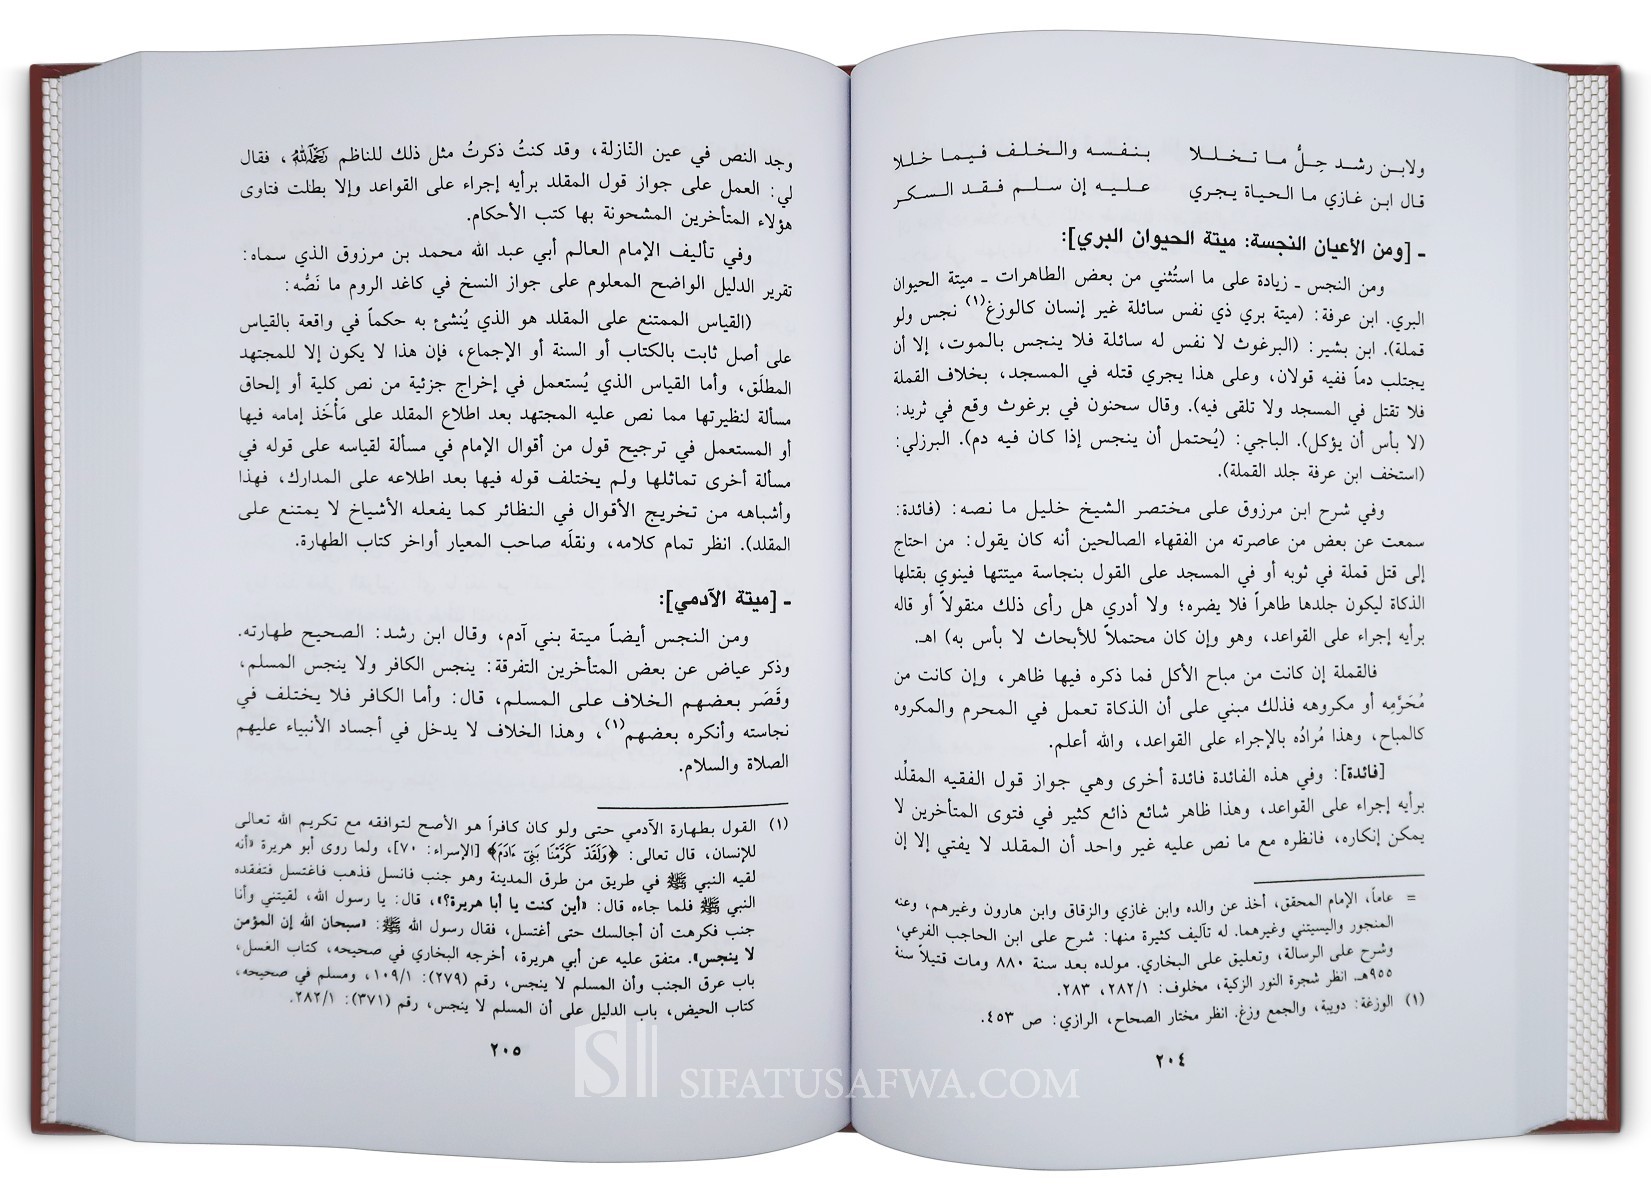 ولابـن رشـد حِـلُّ مـا تـخـلـلا بـنـفـسـه والـخـلـف فـيـمـا خـلـلا
قال ابن غازي ما الحياة يجري عـلـيـه إن سـلـم فـقـد الـسـكـر
ـ [ومن الأعيان النجسة: ميتة الحيوان البري]:
ومن النجس ـ زيادة على ما استُثني من بعض الطاهرات ـ ميتة الحيوان
البري. ابن عرفة: (ميتة بري ذي نفس سائلة غير إنسان كالوزغ(١) نجس ولو
قملة). ابن بشير: (البرغوث لا نفس له سائلة فلا ينجس بالموت، إلا أن
يجتلب دماً ففيه قولان، وعلى هذا يجري قتله في المسجد، بخلاف القملة
فلا تقتل في المسجد ولا تلقى فيه). وقال سحنون في برغوث وقع في ثريد:
(لا بأس أن يؤكل). الباجي: (يُحتمل أن ينجس إذا كان فيه دم). البرزلي:
(استخف ابن عرفة جلد القملة).
وفي شرح ابن مرزوق على مختصر الشيخ خليل ما نصه: (فائدة:
سمعت عن بعض من عاصرته من الفقهاء الصالحين أنه كان يقول: من احتاج
إلى قتل قملة في ثوبه أو في المسجد على القول بنجاسة ميتتها فينوي بقتلها
الذكاة ليكون جلدها طاهراً فلا يضره؛ ولا أدري هل رأى ذلك منقولاً أو قاله
برأيه إجراء على القواعد، وهو وإن كان محتملاً للأبحاث لا بأس به) اهـ.
فالقملة إن كانت من مباح الأكل فما ذكره فيها ظاهر، وإن كانت من
مُحَرَّمِه أو مكروهه فذلك مبني على أن الذكاة تعمل في المحرم والمكروه
كالمباح، وهذا مُرادُه بالإجراء على القواعد، والله أعلم.
[فائدة]: وفي هذه الفائدة فائدة أخرى وهي جواز قول الفقيه المقلِّد
برأيه إجراء على القواعد، وهذا ظاهر شائع ذائع كثير في فتوى المتأخرين لا
يمكن إنكاره، فانظره مع ما نص عليه غير واحد أن المقلد لا يفتي إلا إن
= عاماً، الإمام المحقق، أخذ عن والده وابن غازي والزقاق وابن هارون وغيرهم، وعنه
المنجور واليسيتني وغيرهما. له تآليف كثيرة منها: شرح على ابن الحاجب الفرعي،
وشرح على الرسالة، وتعليق على البخاري. مولده بعد سنة ٨٨٠ ومات قتيلاً سنة
٩٥٥هـ. انظر شجرة النور الزكية، مخلوف: ٢٨٢/١، ٢٨٣.
(١) الوزغة: دويبة، والجمع وزغ. انظر مختار الصحاح، الرازي: ص ٤٥٣.
٢٠٤
وجد النص في عين النّازلة، وقد كنتُ ذكرتُ مثل ذلك للناظم رَحِمَهُ اللهُ، فقال
لي: العمل على جواز قول المقلد برأيه إجراء على القواعد وإلا بطلت فتاوى
هؤلاء المتأخرين المشحونة بها كتب الأحكام.
وفي تأليف الإمام العالم أبي عبد الله محمد بن مرزوق الذي سماه:
تقرير الدليل الواضح المعلوم على جواز النسخ في كاغد الروم ما نَصُّه:
(القياس الممتنع على المقلد هو الذي يُنشئ به حكماً في واقعة بالقياس
على أصل ثابت بالكتاب أو السنة أو الإجماع، فإن هذا لا يكون إلا للمجتهد
المطلَق، وأما القياس الذي يُستعمل في إخراج جزئية من نص كلية أو إلحاق
مسألة لنظيرتها مما نص عليه المجتهد بعد اطلاع المقلد على مَأْخَذ إمامه فيها
أو المستعمل في ترجيح قول من أقوال الإمام في مسألة لقياسه على قوله في
مسألة أخرى تماثلها ولم يختلف قوله فيها بعد اطلاعه على المدارك، فهذا
وأشباهه من تخريج الأقوال في النظائر كما يفعله الأشياخ لا يمتنع على
المقلد). انظر تمام كلامه، ونقلَه صاحب المعيار أواخر كتاب الطهارة.
ـ [ميتة الآدمي]:
ومن النجس أيضاً ميتة بني آدم، وقال ابن رشد: الصحيح طهارته.
وذكر عياض عن بعض المتأخرين التفرقة: ينجس الكافر ولا ينجس المسلم،
وقَصَر بعضهم الخلاف على المسلم، قال: وأما الكافر فلا يختلف في
نجاسته وأنكره بعضهم(١)، وهذا الخلاف لا يدخل في أجساد الأنبياء عليهم
الصلاة والسلام.
(١) القول بطهارة الآدمي حتى ولو كان كافراً هو الأصح لتوافقه مع تكريم الله تعالى
للإنسان، قال تعالى: ﴿وَلَقَدْ كَرَّمْنَا بَنِىٓ ءَادَمَ﴾ [الإسراء: ٧٠]، ولما روى أبو هريرة «أنه
لقيه النبي ﷺ في طريق من طرق المدينة وهو جنب فانسل فذهب فاغتسل فتفقده
النبي ﷺ فلما جاءه قال: «أين كنت يا أبا هريرة؟»، قال: يا رسول الله، لقيتني وأنا
جنب فكرهت أن أجالسك حتى أغتسل، فقال رسول الله ﷺ: «سبحان الله إن المؤمن
لا ينجس». متفق عليه عن أبي هريرة، أخرجه البخاري في صحيحه، كتاب الغسل،
باب عرق الجنب وأن المسلم لا ينجس، رقم (٢٧٩): ١٠٩/١، ومسلم في صحيحه،
كتاب الحيض، باب الدليل على أن المسلم لا ينجس، رقم (٣٧١): ٢٨٢/١.
٢٠٥
SIFATUSAFWA.COM